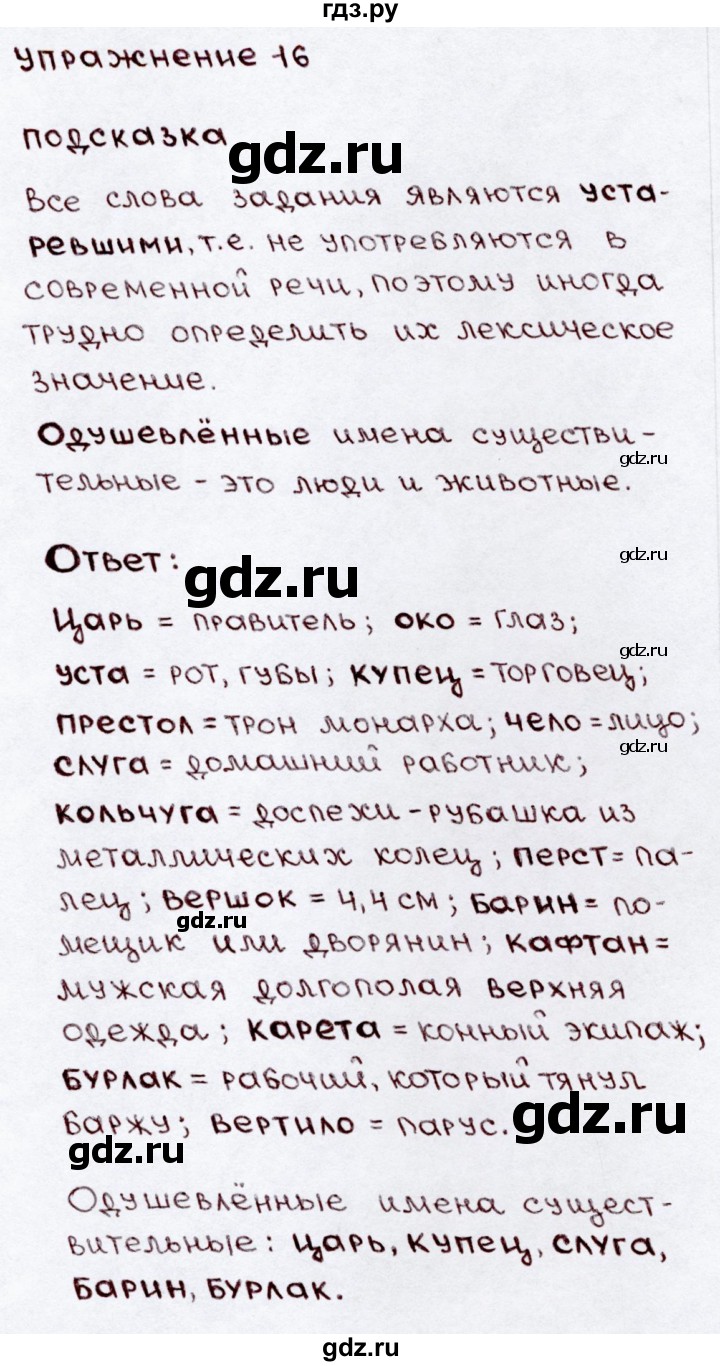 гдз.ру
Упражнение 16
Подсказка
gdz.ru
Все слова задания являются уста-
ревшими, т.е. не употребляются в
современной речи, поэтому иногда
трудно определить их лексическое
значение.
Одушевлённые имена существи-
gdz.ru
тельные - это люди и животные.
Ответ:
gdz.ru
gdz.ru
Царь = правитель; око = глаз;
gdz.ru
уста = рот, губы; купец = торговец;
престол = трон монарха; чело = лицо;
gdz.ru
слуга = домашний работник;
кольчуга = доспехи - рубашка из
металлических колец; перст = па-
лец; вершок = 4,4 см; барин = по-
gdz.ru
мещик или дворянин; кафтан =
мужская долгополая верхняя
одежда; карета = конный экипаж;
бурлак = рабочий, который тянул
баржу; вертило = парус.
gdz.ru
gdz.ru
Одушевлённые имена сущест-
вительные: царь, купец, слуга,
барин, бурлак.
gdz.ru